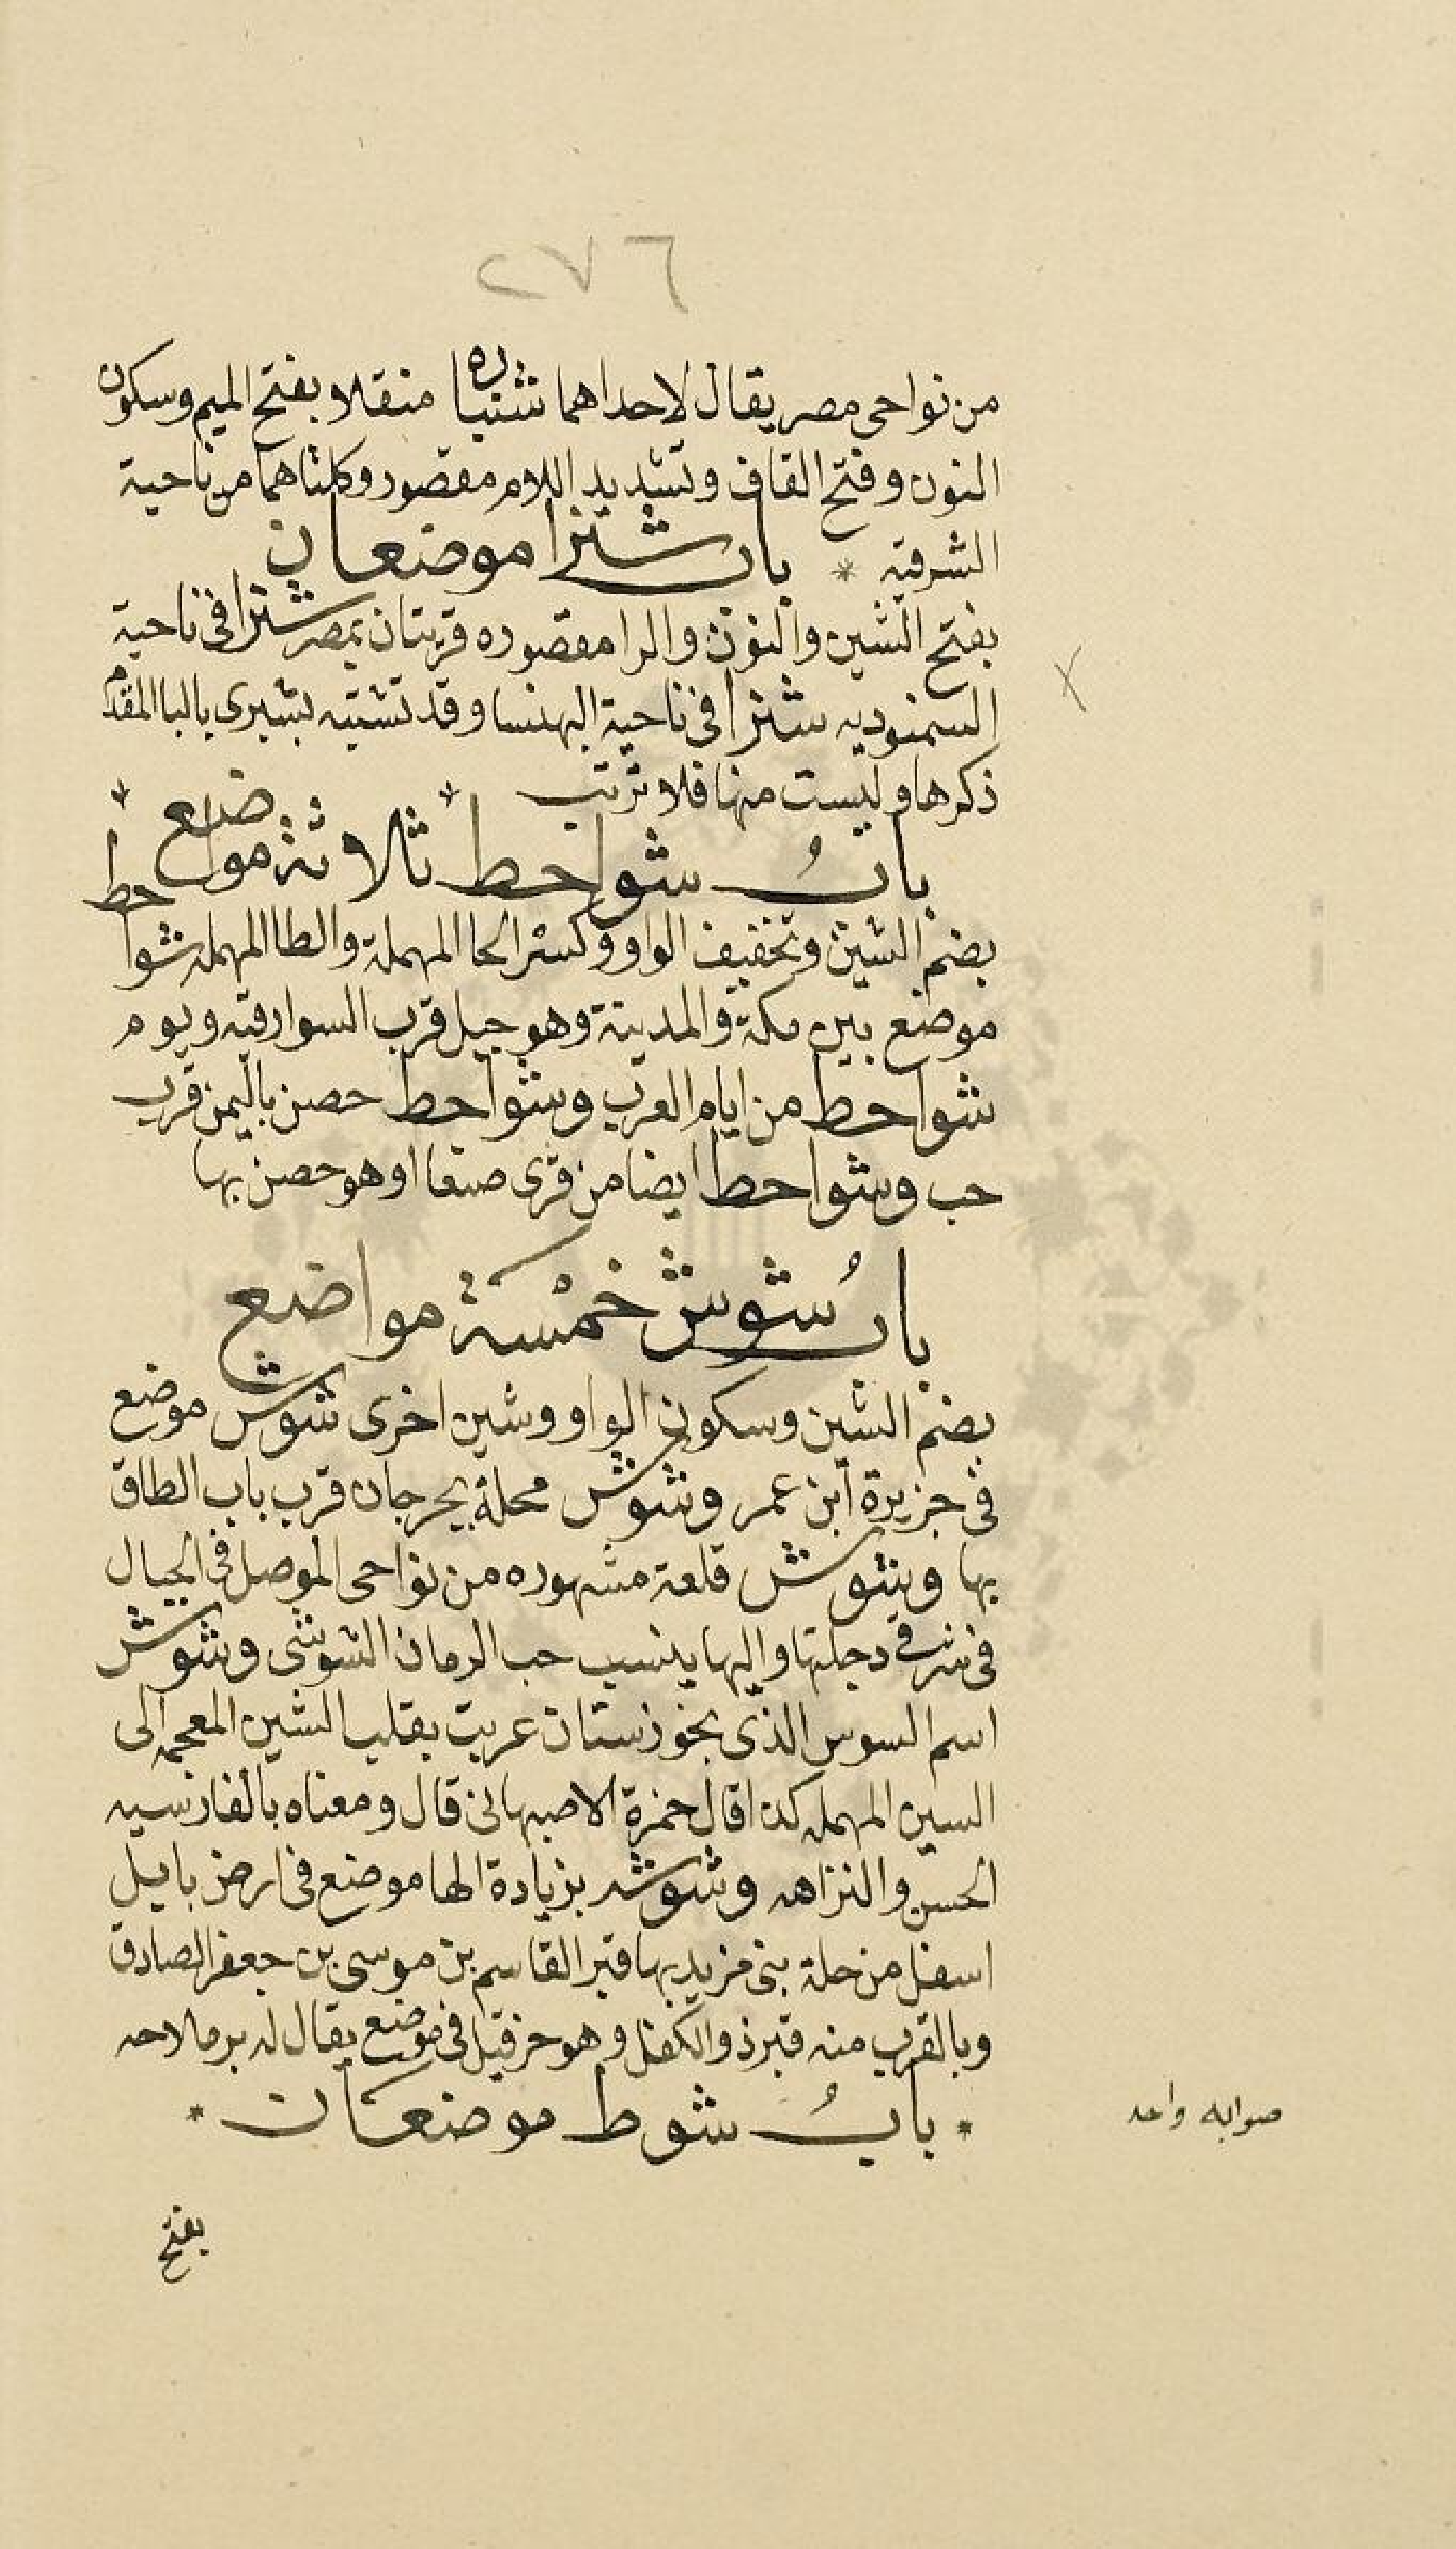 ٢٧٦
من نواحى مصر يقال لاحداهما شنباره منقلا بفتح الميم وسكون
النون وفتح القاف وتشديد اللام مقصور وكلتاهما من ناحية
الشرقية * باب شنرا موضعان
بفتح الشين والنون والرا مقصوره قريتان بمصر شنرا فى ناحية
السمنوديه شنرا فى ناحية البهنسا وقد تشتبه بشبرى بالبا المقدم
ذكرها وليست منها فلا ترتب
بابُ شواحط ثلاثة مواضع
بضم الشين وتخفيف الواو وكسر الحا المهملة والطا المهمله شواحط
موضع بين مكة والمدينة وهو جبل قرب السوارقيه ويوم
شواحط من ايام العرب وشواحط حصن باليمن قرب
حب وشواحط ايضا من قرى صنعا او هو حصن بها
بابُ شوش خمسة مواضع
بضم الشين وسكون الواو وشين اخرى شوش موضع
فى جزيرة ابن عمر وشوش محلة بجرجان قرب باب الطاق
بها وشوش قلعة مشهوره من نواحى الموصل فى الجبال
فى شرقى دجلتها واليها ينسب حب الرمان الشوشى وشوش
اسم السوس الذى بخوزستان عربت بقلب الشين المعجمه الى
السين المهمله كذا قال حمزة الاصبهانى قال ومعناه بالفارسيه
الحسن والنزاهه وشوشه بزيادة الها موضع فى ارض بابيل
اسفل من حلة بنى مزيد بها قبر القاسم بن موسى بن جعفر الصادق
وبالقرب منه قبر ذو الكفل وهو حزقيل فى موضع يقال له برملاحه
* بابُ شوط موضعان *
صوابه واحد
بفتح